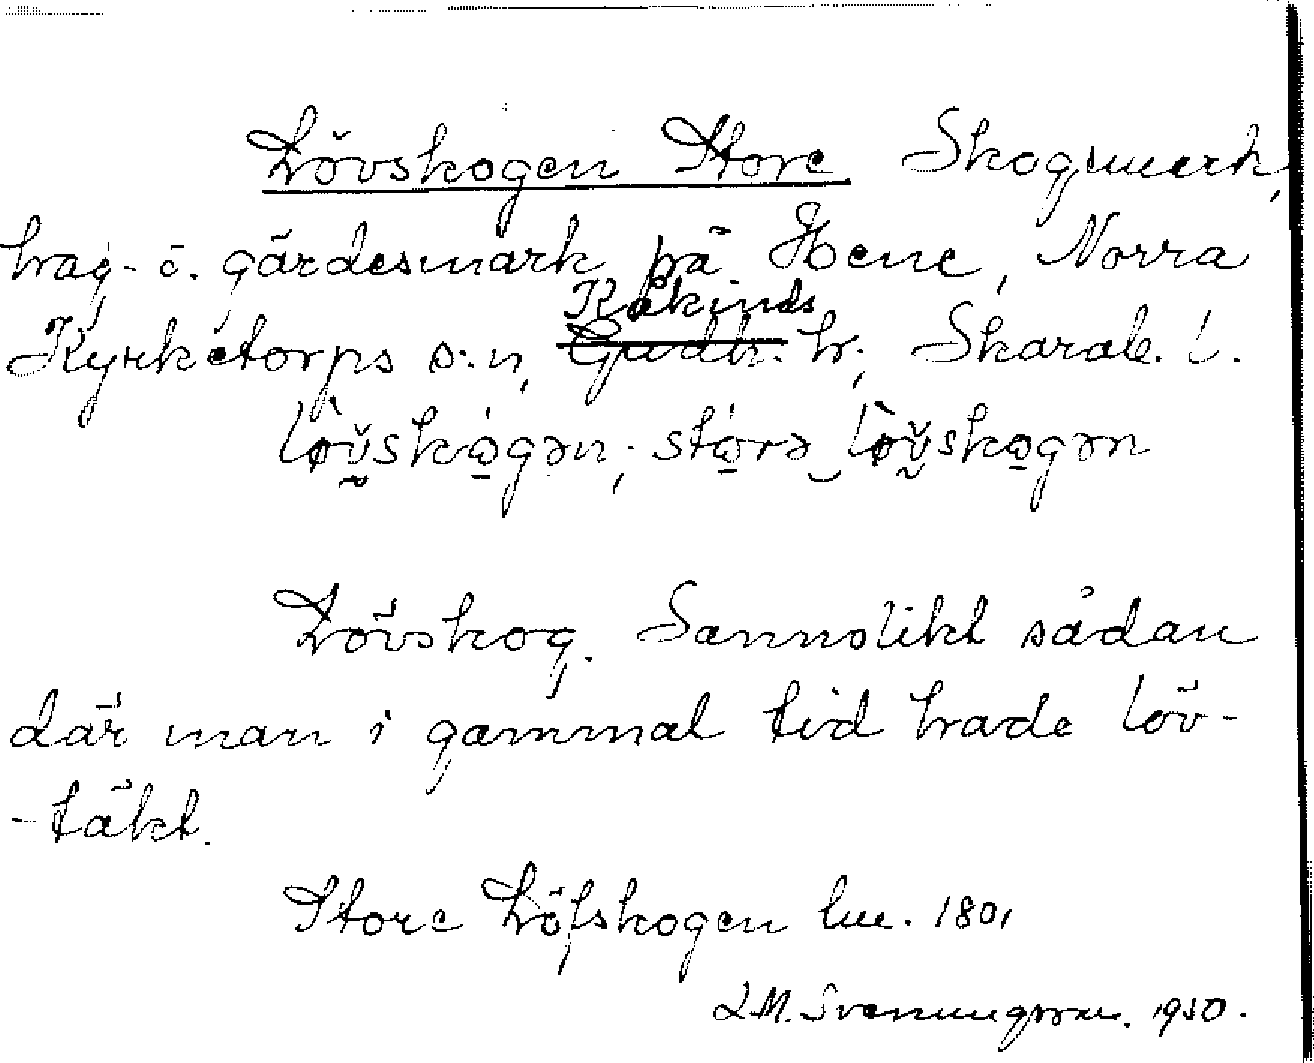 Lövskogen Store Skogsmark,
hag- o. gärdesmark på Hene, Norra
Kåkinds
Kyrketorps s:n, Gudh. hr; Skarab. l.
lòv̌skò̱gən; stó̱rə‿lòv̌sko̱gən
Lövskog. Sannolikt sådan
där man i gammal tid hade löv-
-täkt.
Store Löfskogen lm. 1801
L.M. Svenungsson. 1950.